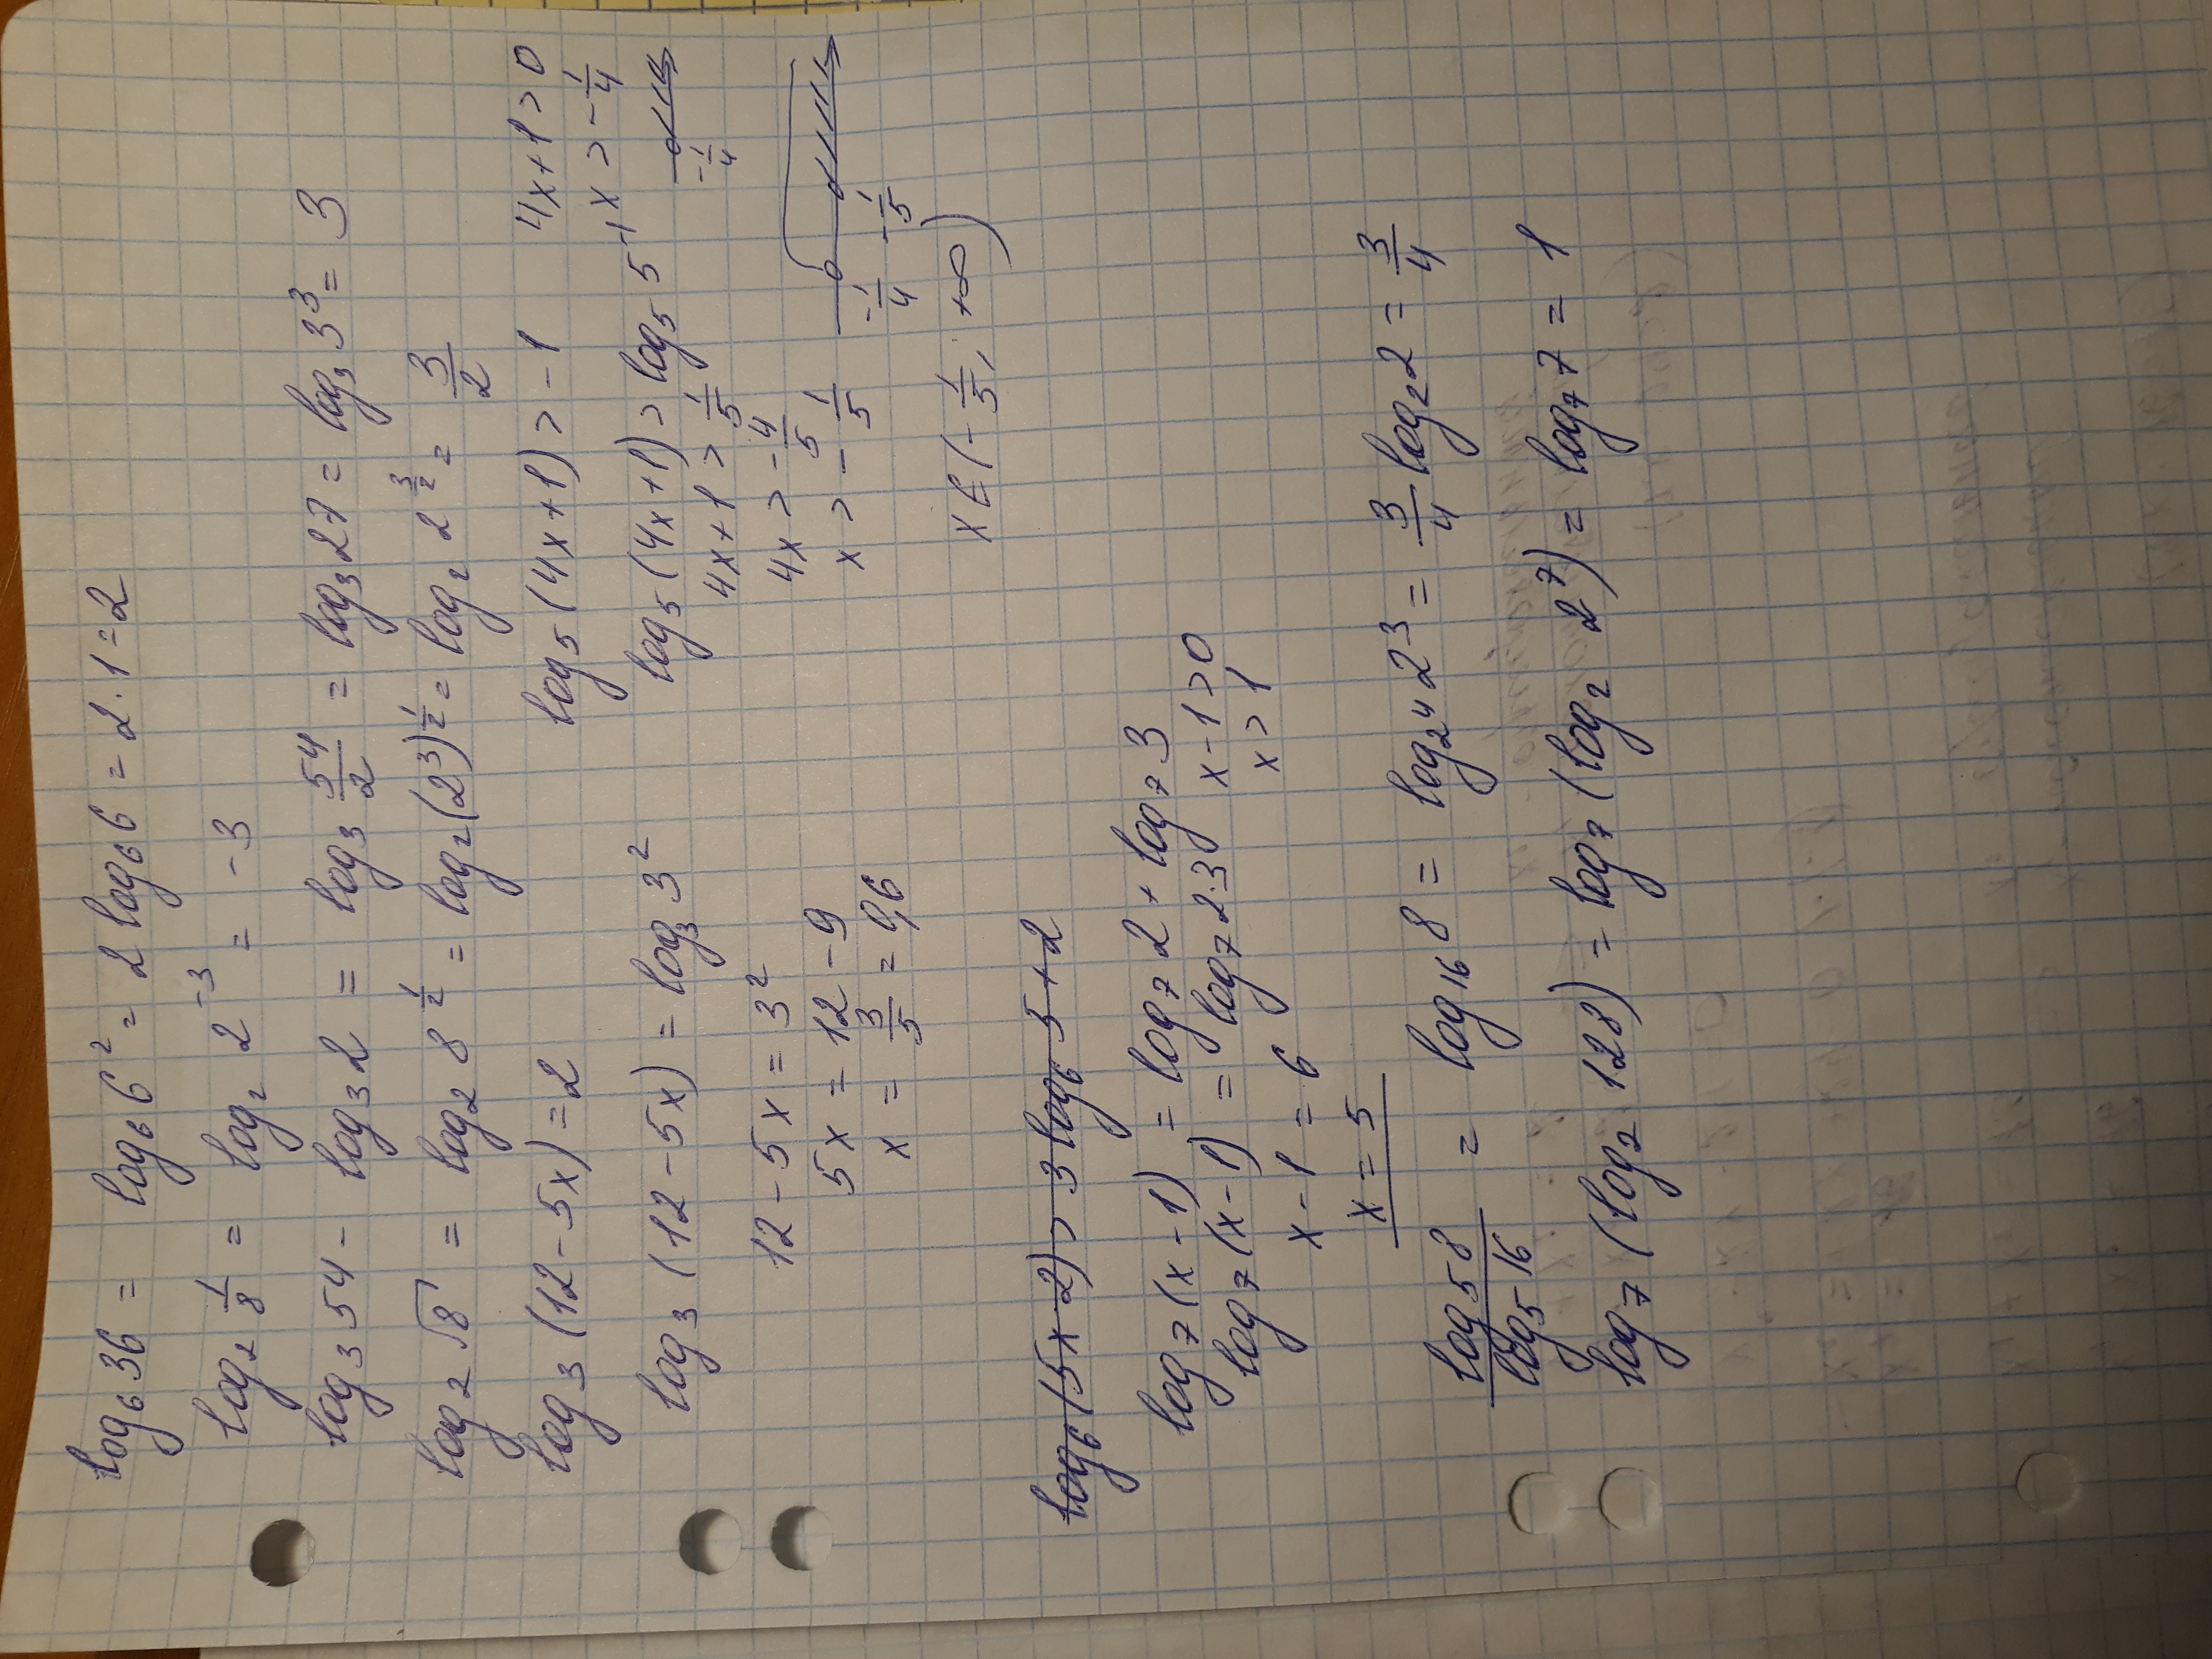 log₆36 = log₆6² = 2 log₆6 = 2·1=2
log₂ 1/8 = log₂ 2⁻³ = -3
log₃54 - log₃2 = log₃ 54/2 = log₃27 = log₃3³ = 3
log₂√8 = log₂ 8^(1/2) = log₂(2³)^(1/2) = log₂ 2^(3/2) = 3/2
log₃(12-5x)=2
log₃(12-5x) = log₃3²
12-5x = 3²
5x = 12-9
x = 3/5 = 0,6
log₅(4x+1) > -1
log₅(4x+1) > log₅5⁻¹
4x+1 > 1/5
4x > -4/5
x > -1/5
4x+1>0
x > -1/4
-1/4
-1/4 -1/5
x ∈ (-1/5; +∞)
log₆(5x-2) > 3log₆5+2
log₇(x-1) = log₇2 + log₇3
log₇(x-1) = log₇2·3
x-1>0
x > 1
x-1 = 6
x = 5
log₅8/log₅16 = log₁₆8 = log₂⁴2³ = 3/4 log₂2 = 3/4
log₇(log₂128) = log₇(log₂2⁷) = log₇7 = 1